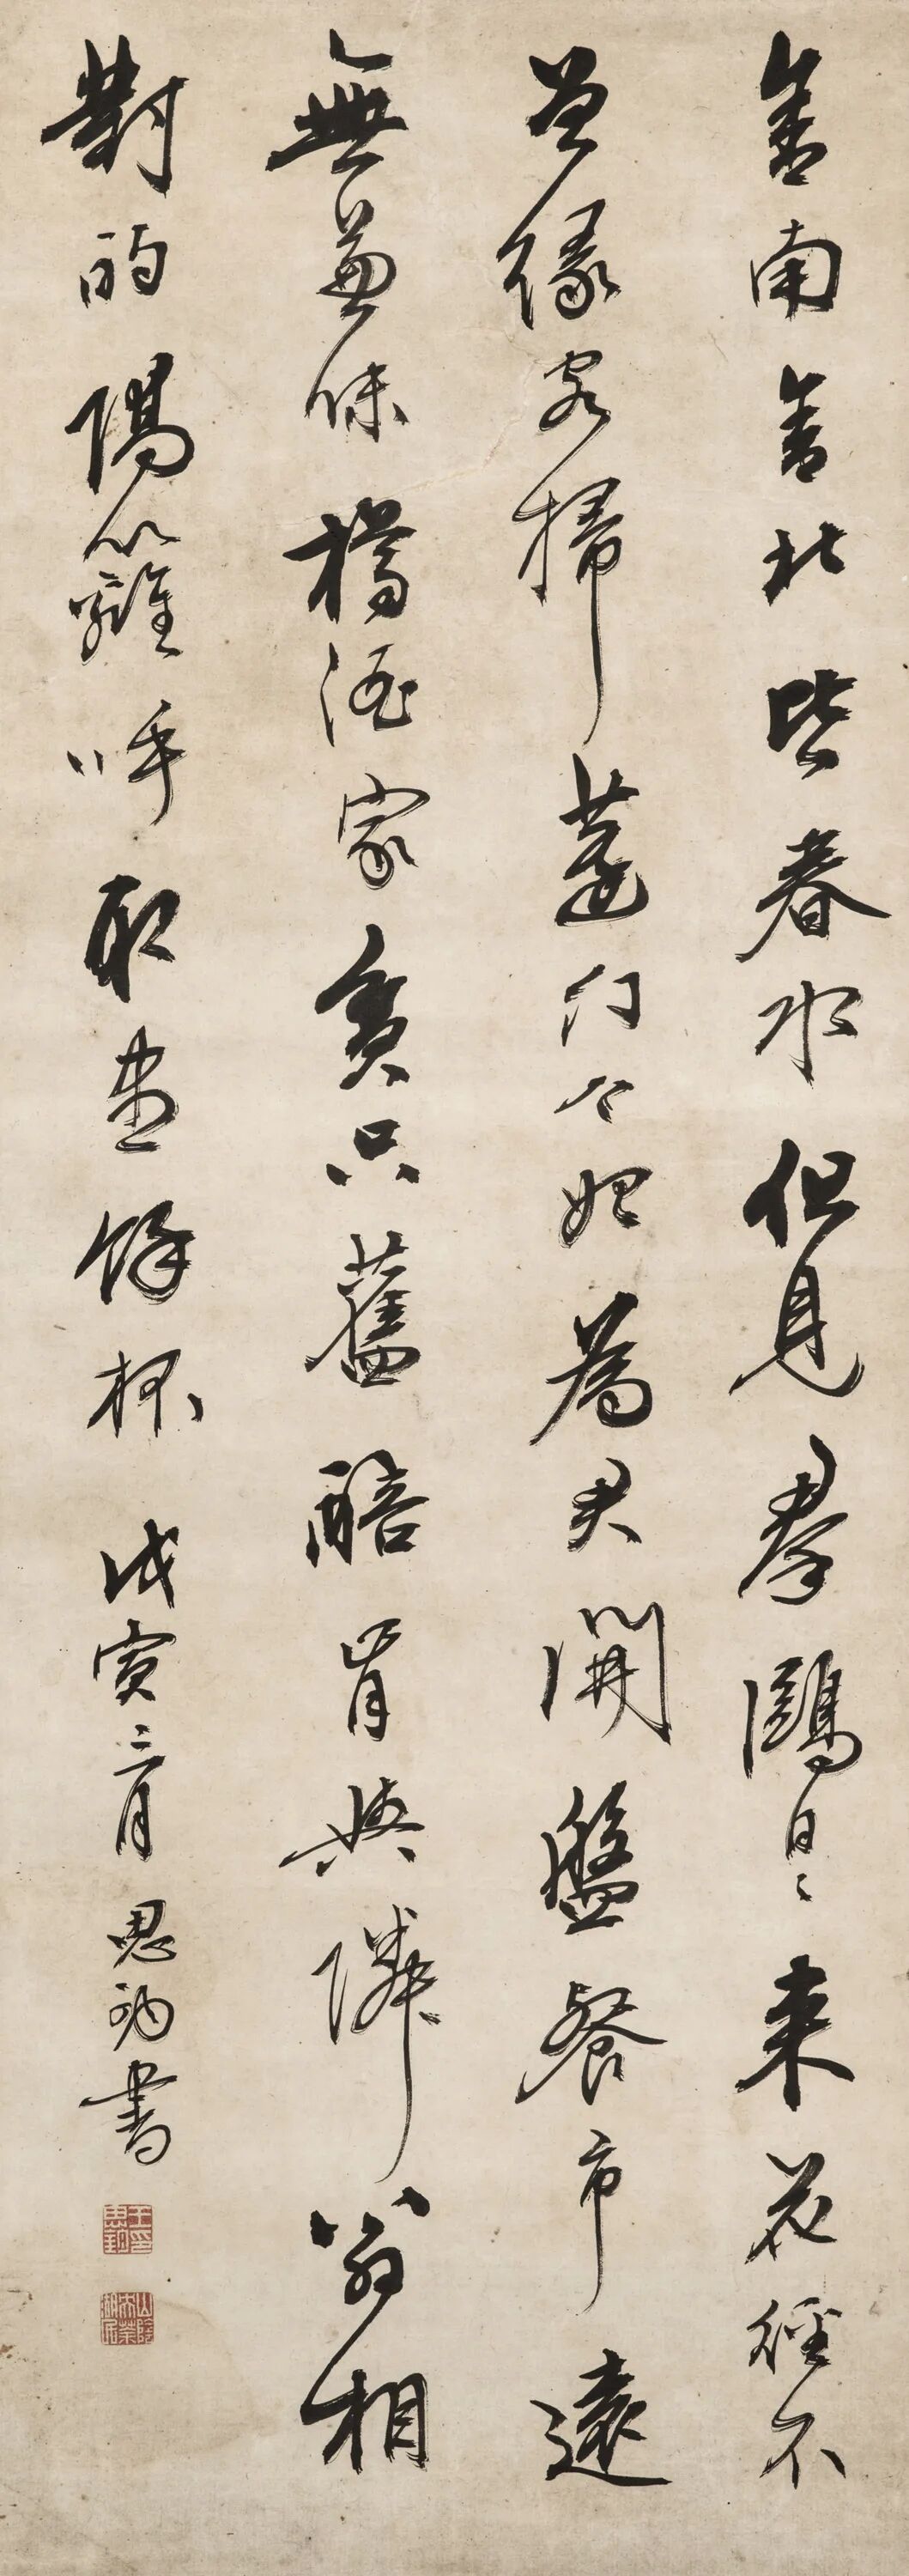 舍南舍北皆春水但見群鷗日〻來花徑不
曾緣客掃蓬門今始為君開盤飧市遠
無兼味樽酒家貧只舊醅肯與隣翁相
對酌隔籬呼取盡餘杯 戊寅二月 思初書